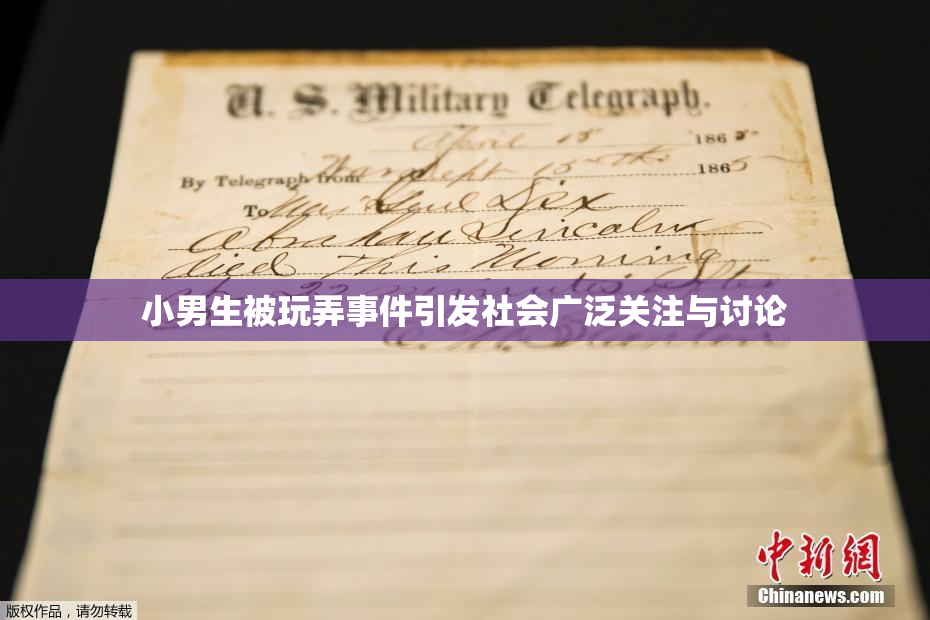 U. S. Military Telegraph.
April 15 1865
By Telegraph from War Dept 15th 1865
To Maj Genl Dix
Abraham Lincoln
died This Morning
22 minutes after
小男生被玩弄事件引发社会广泛关注与讨论
E. M. Stanton
中新网
Chinanews.com
版权作品，请勿转载